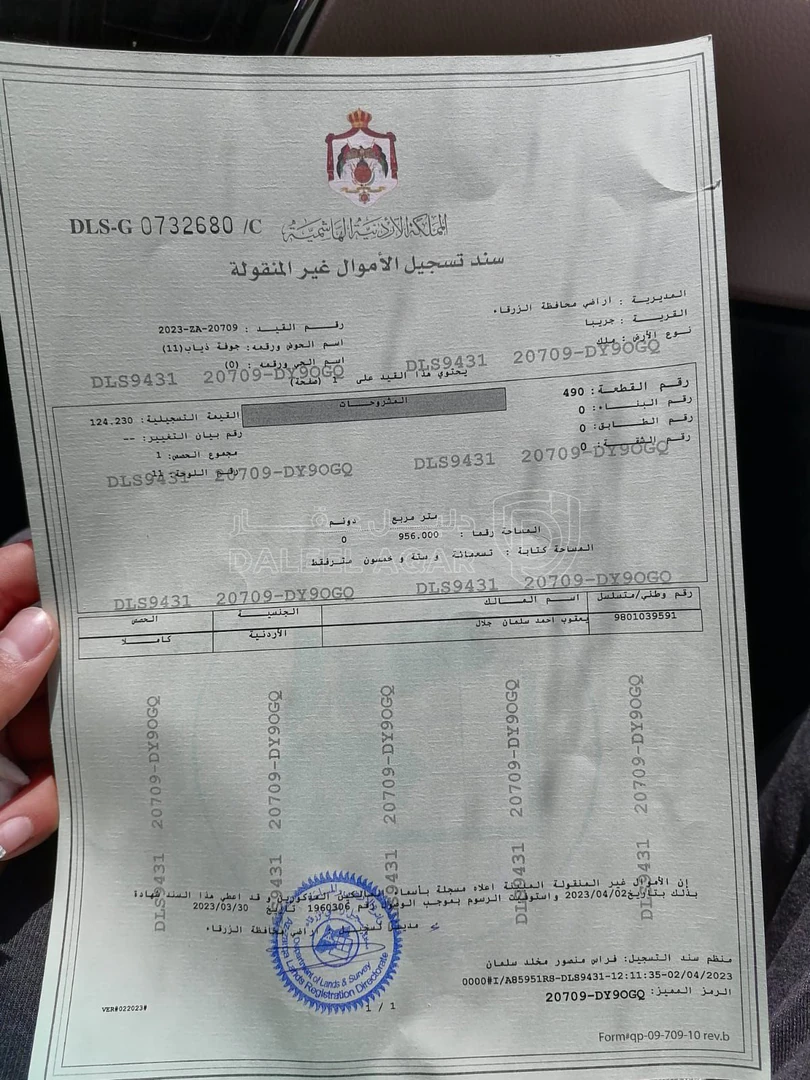 DLS-G 0732680 /C
المملكة الأردنية الهاشمية
سند تسجيل الأموال غير المنقولة
المديرية : اراضي محافظة الزرقاء
القرية : جريبا
نوع الأرض: ملك
رقم القيد : 2023-ZA-20709
اسم الحوض ورقمه: جوفة ذياب(11)
اسم الحي ورقمه : (0)
يحتوي هذا القيد على 1 (صفحة)
DLS9431 20709-DY9OGQ DLS9431 20709-DY9OGQ
المشروحات
رقم القطعة: 490
رقم البناء: 0
رقم الطابق: 0
رقم الشقة: 0
القيمة التسجيلية: 124.230
رقم بيان التغيير: --
مجموع الحصص: 1
رقم اللوحة: 11
DLS9431 20709-DY9OGQ DLS9431 20709-DY9OGQ
دليل عقار
DALEEL AQAR
متر مربع دونم
المساحة رقما : 956.000 0
المساحة كتابة : تسعمائة و ستة و خمسون مترفقط
DLS9431 20709-DY9OGQ DLS9431 20709-DY9OGQ
رقم وطني/متسلسل اسم المالك الجنسية الحصص
9801039591 يعقوب احمد سلمان جلال الأردنية كاملا
DLS9431 20709-DY9OGQ
DLS9431 20709-DY9OGQ
DLS9431 20709-DY9OGQ
DLS9431 20709-DY9OGQ
DLS9431 20709-DY9OGQ
إن الأموال غير المنقولة المبينة اعلاه مسجلة بأسماء المالكين المذكورين و قد اعطي هذا السند شهادة
بذلك بتاريخ 2023/04/02 واستوفيت الرسوم بموجب الوصول رقم 1960306 تاريخ 2023/03/30
مدير تسجيل اراضي محافظة الزرقاء
Department of Lands & Survey
Zarqa Lands Registration Directorate
منظم سند التسجيل: فراس منصور مخلد سلمان
0000#I/A85951RS-DLS9431-12:11:35-02/04/2023
الرمز المميز: 20709-DY9OGQ
1 / 1
VER#022023#
Form#qp-09-709-10 rev.b